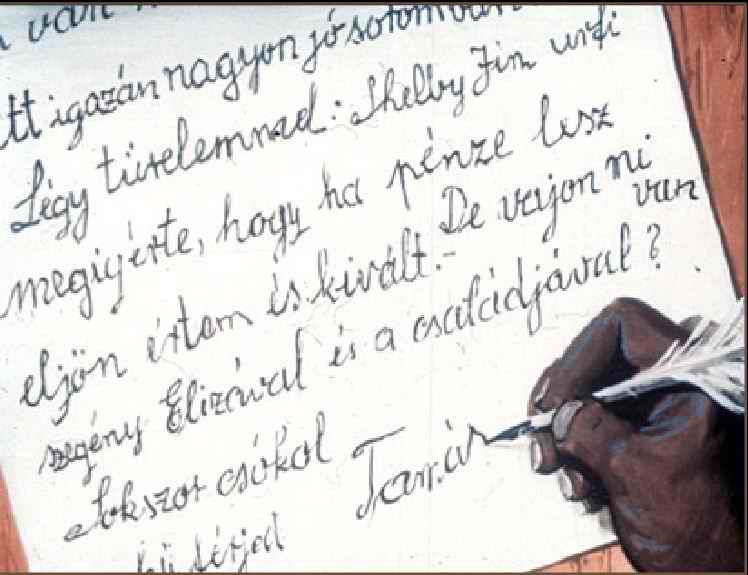 van
tt igazán nagyon jó sorom van
Légy türelemmel: Shelby Jim urfi
megigérte, hogy ha pénze lesz
eljön értem és kivált.- De vajon mi
van
szegény Elizával és a családjával?
Sokszor csókol Tamás
hű férjed